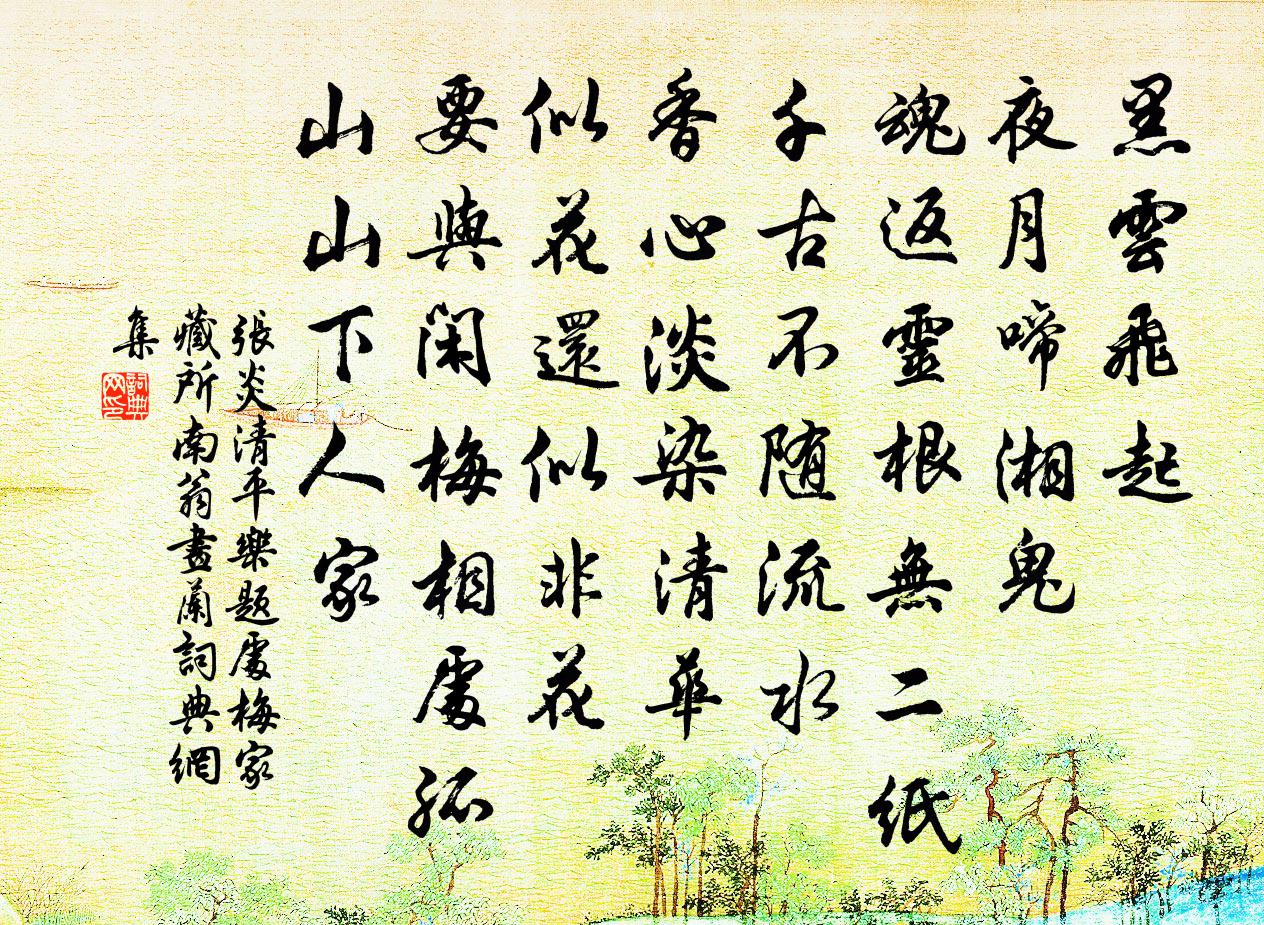 黑雲飛起
夜月啼湘鬼
魂返靈根無二紙
千古不随流水
香心淡染清華
似花還似非花
要與閑梅相處孤
山山下人家
張炎清平樂题處梅家
藏所南翁畫蘭詞典網
集
詞典网印